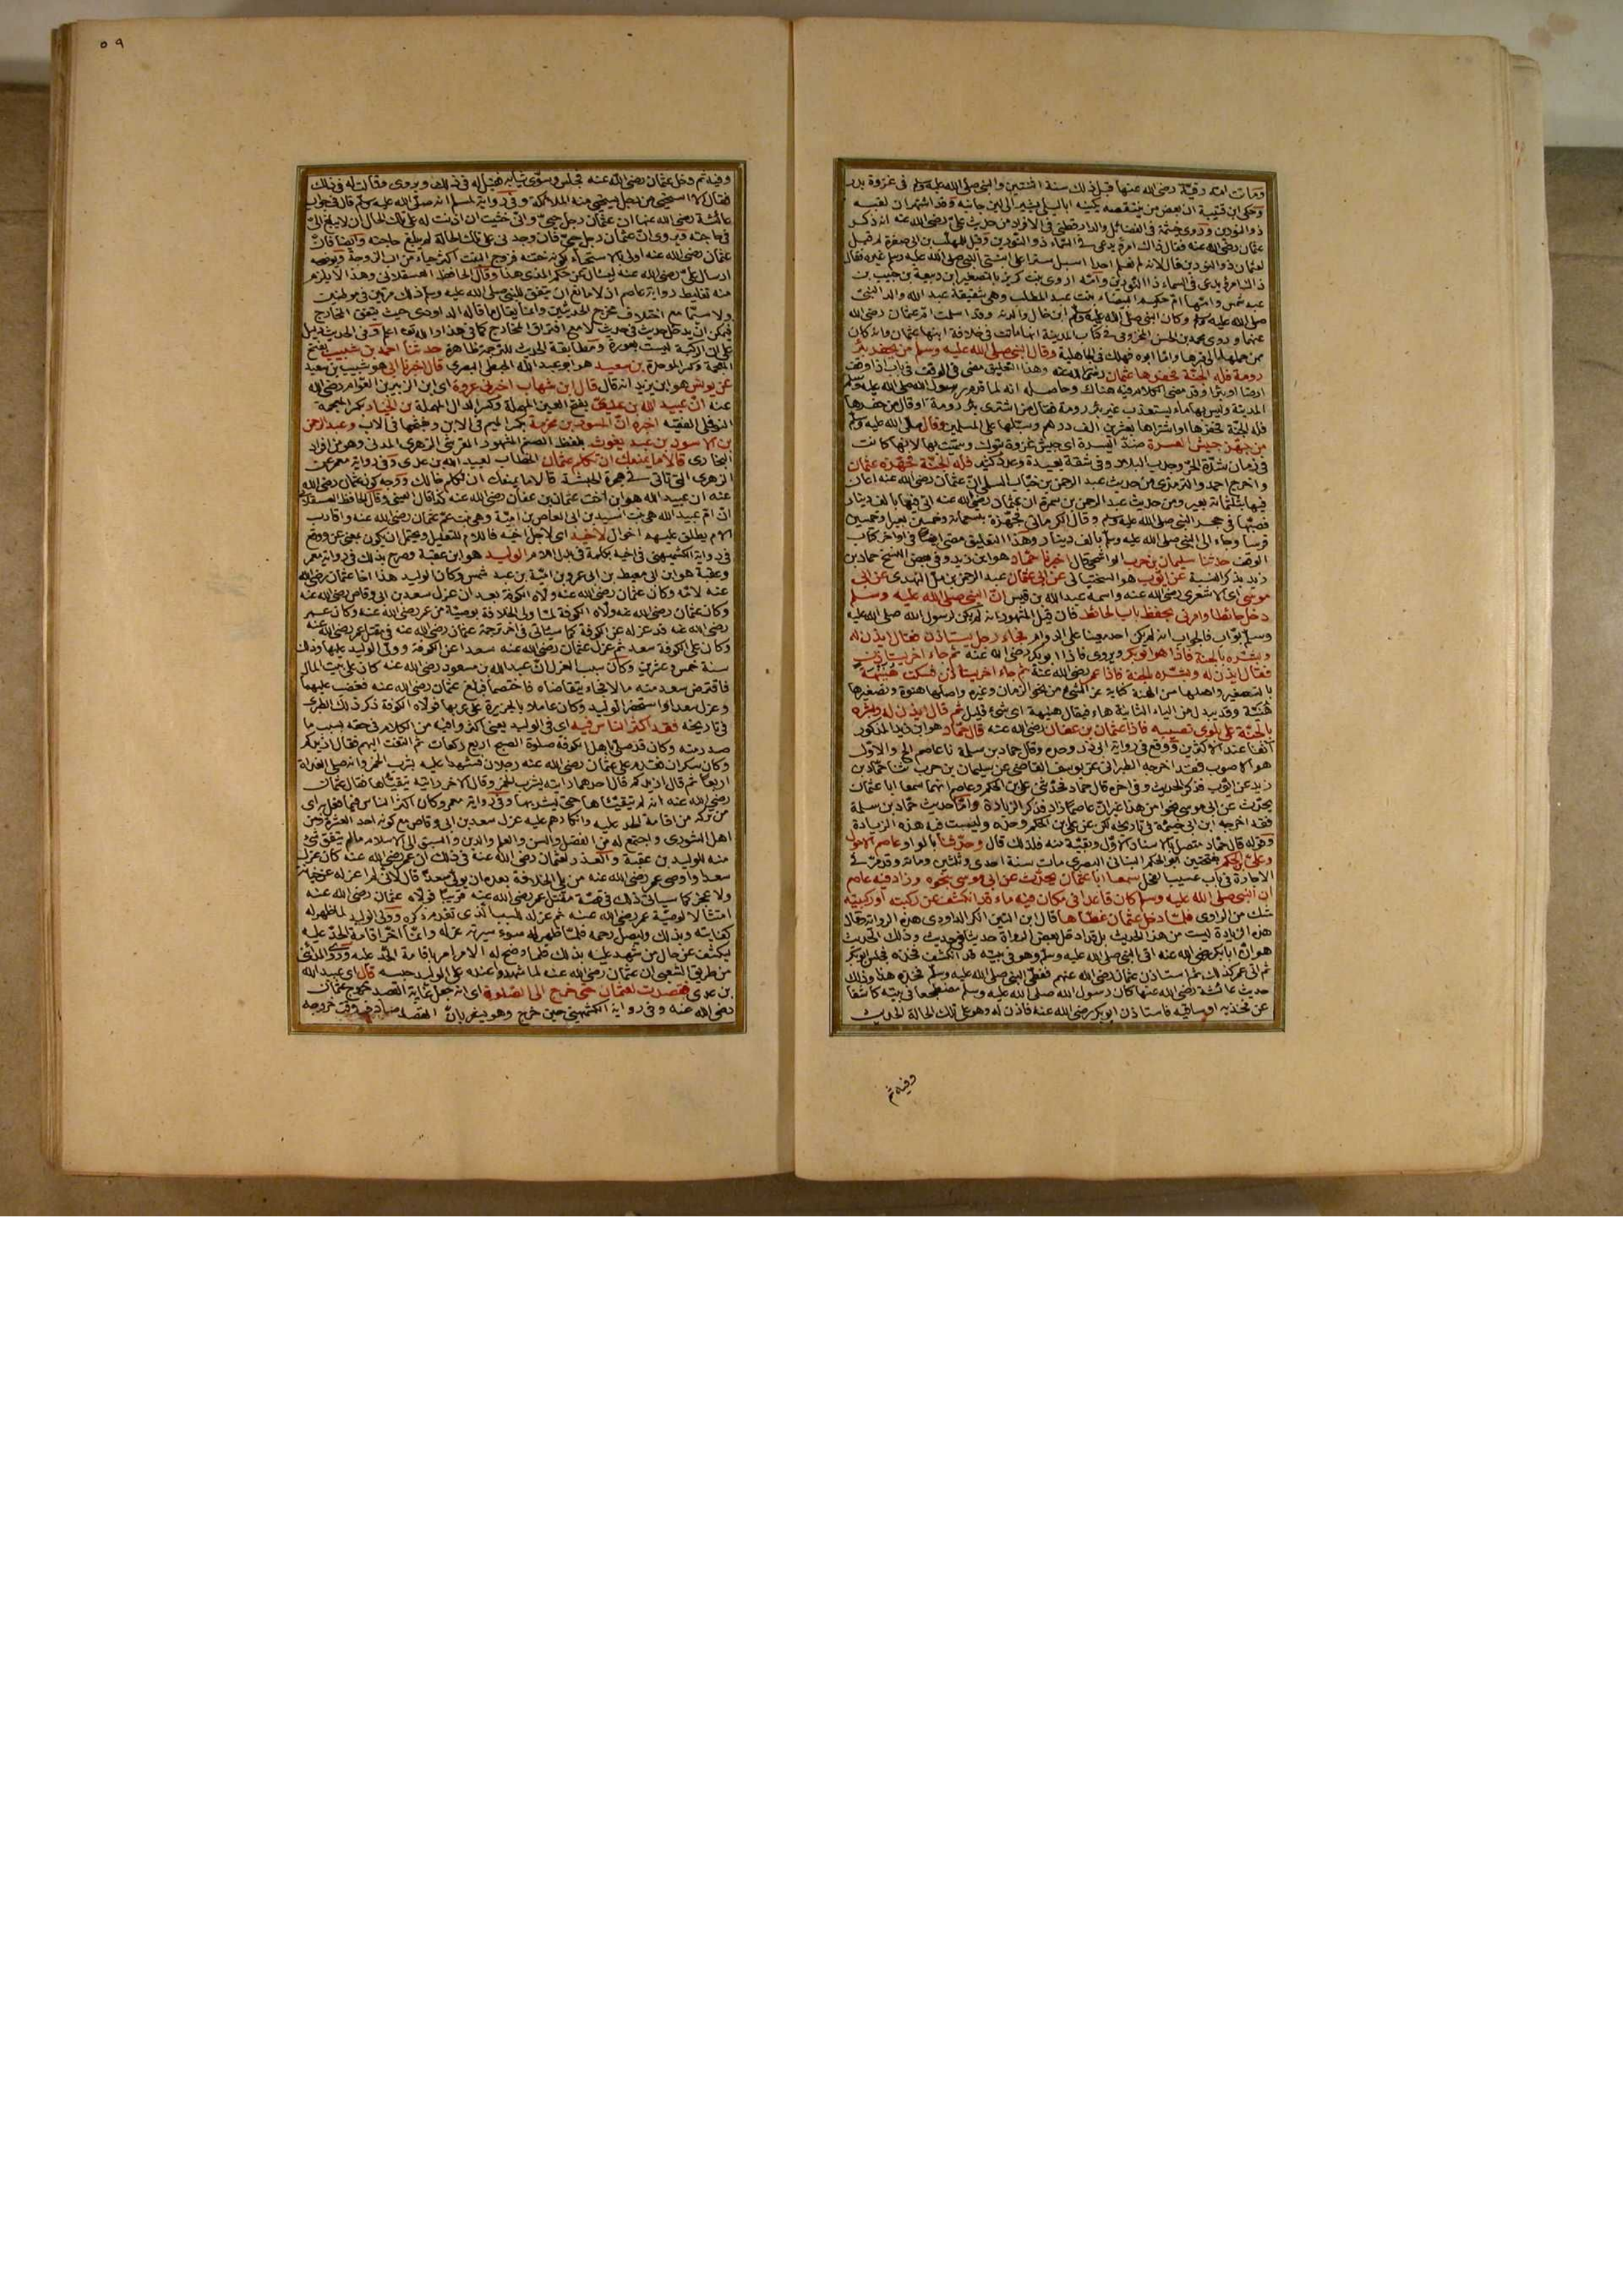 وماتت امه رقية رضي الله عنها قبل ذلك سنة اثنتين والنبي صلى الله عليه وسلم في غزوة بدر
وحكى ابن قتيبة ان بعض من ينتقصه يكنيه ابا ليلى يشير الى لين جانبه وقد اشتهر ان لقبه
ذو النورين وروى خيثمة في الفضائل والدارقطني في الافراد من حديث علي رضي الله عنه انه ذكر
عثمان رضي الله عنه فقال ذاك امرؤ يدعى في السماء ذو النورين وقيل للمهلب بن ابي صفرة لم قيل
لعثمان ذو النورين قال لانه لم نعلم احدا اسبل سترا على ابنتي النبي صلى الله عليه وسلم غيره
ذاك امرؤ يدعى في السماء ذا النورين وامه اروى بنت كريز بالتصغير ابن ربيعة بن حبيب بن
عبد شمس وامها ام حكيم البيضاء بنت عبد المطلب وهي شقيقة عبد الله والد النبي
صلى الله عليه وسلم وكان النبي صلى الله عليه وسلم ابن خال والدته وقد اسلمت ام عثمان رضي الله
عنهما وروى محمد بن الحسن المخزومي في كتاب المدينة انها ماتت في خلافة ابنها عثمان وانه كان
ممن حملها الى قبرها واما ابوه فهلك في الجاهلية وقال النبي صلى الله عليه وسلم من يحفر بئر
رومة فله الجنة فحفرها عثمان رضي الله عنه وهذا التعليق مضى في الوقف في باب اذا وقف
ارضا او بئرا وقد مضى الكلام فيه هناك وحاصله انه لما قدم رسول الله صلى الله عليه وسلم
المدينة وليس بها ماء يستعذب غير بئر رومة فقال من اشترى بئر رومة او قال من حفرها
فله الجنة فحفرها او اشتراها بعشرين الف درهم وسبلها على المسلمين وقال صلى الله عليه وسلم
من جهز جيش العسرة ضد اليسرة اي جيش غزوة تبوك وسميت بها لانها كانت
في زمان شدة الحر وجدب البلاد وفي شقة بعيدة وعدو كثير فله الجنة فجهزه عثمان
واخرج احمد والترمذي من حديث عبد الرحمن بن خباب السلمي ان عثمان رضي الله عنه اعان
فيها بثلثمائة بعير ومن حديث عبد الرحمن بن سمرة ان عثمان رضي الله عنه اتى فيها بالف دينار
فصبها في حجر النبي صلى الله عليه وسلم وقال الكرماني فجهزه بتسعمائة وخمسين بعيرا وخمسين
فرسا وجاء الى النبي صلى الله عليه وسلم بالف دينار وهذا التعليق مضى ايضا في اواخر كتاب
الوقف حدثنا سليمان بن حرب الواشحي قال اخبرنا حماد هو ابن زيد وفي بعض النسخ حماد بن
زيد بذكر النسبة عن ايوب هو السختياني عن ابي عثمان عبد الرحمن بن مل النهدي عن ابي
موسى اي الاشعري رضي الله عنه واسمه عبد الله بن قيس ان النبي صلى الله عليه وسلم
دخل حائطا وامرني بحفظ باب الحائط فان قيل المشهور انه لم يكن لرسول الله صلى الله عليه
وسلم بواب فالجواب انه لم يكن احد معينا على الدوام فجاء رجل يستاذن فقال ايذن له
وبشره بالجنة فاذا هو ابو بكر ويروى فاذا ابو بكر رضي الله عنه ثم جاء اخر يستاذن
فقال ايذن له وبشره بالجنة فاذا عمر رضي الله عنه ثم جاء اخر يستاذن فسكت هنيهة
بالتصغير واصلها من الهنة كناية عن الشيء من نحو الزمان وغيره واصلها هنوة وتصغيرها
هنية وقد يبدل من الياء الثانية هاء فيقال هنيهة اي شيء قليل ثم قال ايذن له وبشره
بالجنة على بلوى تصيبه فاذا عثمان بن عفان رضي الله عنه قال حماد هو ابن زيد المذكور
آنفا عند الاكثرين ووقع في رواية ابي ذر وحده وقال حماد بن سلمة نا عاصم الخ والاول
هو الاصوب فقد اخرجه الطبراني عن يوسف القاضي عن سليمان بن حرب ثنا حماد بن
زيد عن ايوب فذكر الحديث وفي اخره قال حماد فحدثني علي بن الحكم وعاصم انهما سمعا ابا عثمان
يحدث عن ابي موسى نحوا من هذا غير ان عاصما زاد فذكر الزيادة واما حديث حماد بن سلمة
فقد اخرجه ابن ابي خيثمة في تاريخه لكن عن علي بن الحكم وحده وليست فيه هذه الزيادة
وقوله قال حماد متصل بالاسناد الاول وبقية منه فلذلك قال وحدثنا بالواو عاصم الاحول
وعلي بن الحكم بفتحتين ابو الحكم البناني البصري مات سنة احدى وثلثين ومائة وقد مر في
الاجارة في باب عسيب الفحل سمعا ابا عثمان يحدث عن ابي موسى بنحوه وزاد فيه عاصم
ان النبي صلى الله عليه وسلم كان قاعدا في مكان فيه ماء قد انكشف عن ركبته او ركبتيه
شك من الراوي فلما دخل عثمان غطاها قال ابن التين انكر الداودي هذه الرواية وقال
هذه الزيادة ليست من هذا الحديث بل قد ادخل بعض الرواة حديثا في حديث وذلك الحديث
هو ان ابا بكر رضي الله عنه اتى النبي صلى الله عليه وسلم وهو في بيته قد انكشف فخذه فجلس ابو بكر
ثم اتى عمر كذلك ثم استاذن عثمان رضي الله عنهم فغطى النبي صلى الله عليه وسلم فخذه وذلك
حديث عائشة رضي الله عنها كان رسول الله صلى الله عليه وسلم مضطجعا في بيته كاشفا
عن فخذيه او ساقيه فاستاذن ابو بكر رضي الله عنه فاذن له وهو على تلك الحالة الحديث
وفيه ثم
٥٩
وفيه ثم دخل عثمان رضي الله عنه فجلس وسوى ثيابه فقيل له في ذلك ويروى وقالت له في ذلك
فقال الا استحيي من رجل يستحيي منه الملائكة وفي رواية لمسلم انه صلى الله عليه وسلم قال في جواب
عائشة رضي الله عنها ان عثمان رجل حيي واني خشيت ان اذنت له على تلك الحال ان لا يبلغ الي
في حاجته ويروى ان عثمان رجل حيي فان وجدني على تلك الحالة لم يبلغ حاجته وايضا فان
عثمان رضي الله عنه اولى بالاستحياء لكونه ختنه فزوج البنت اكثر حياء من اب الزوجة ويوضحه
ارسال علي رضي الله عنه ليسال عن حكم المذي هذا وقال الحافظ العسقلاني وهذا لا يلزم
منه تغليط رواية عاصم اذ لا مانع ان يتفق للنبي صلى الله عليه وسلم ذلك مرتين في موطنين
ولا سيما مع اختلاف مخرج الحديثين وانما يقال ما قاله الداودي حيث يتفق المخارج
فيمكن ان يدخل حديث في حديث لا مع افتراق المخارج كما في هذا والله تعالى اعلم وفي الحديث دليل
على ان الركبة ليست بعورة ومطابقة الحديث للترجمة ظاهرة حدثنا احمد بن شبيب بفتح
المعجمة وكسر الموحدة بن سعيد هو ابو عبد الله الحبطي البصري قال اخبرنا ابي هو شبيب بن سعيد
عن يونس هو ابن يزيد انه قال قال ابن شهاب اخبرني عروة اي ابن الزبير بن العوام رضي الله
عنه ان عبيد الله بن عدي بفتح العين المهملة وكسر الدال المهملة بن الخيار بكسر المعجمة
النوفلي الفقيه اخبره ان المسور بن مخرمة بكسر الميم في الابن وفتحها في الاب وعبد الرحمن
بن الاسود بن عبد يغوث بلفظ الصنم المشهور القرشي الزهري المدني وهو من افراد
البخاري قالا ما يمنعك ان تكلم عثمان الخطاب لعبيد الله بن عدي وفي رواية معمر عن
الزهري التي تاتي في هجرة الحبشة قالا ما يمنعك ان تكلم خالك ووجه كون عثمان رضي الله
عنه ان عبيد الله هو ابن اخت عثمان بن عفان رضي الله عنه كذا قال العيني وقال الحافظ العسقلاني
ان ام عبيد الله هي بنت اسيد بن ابي العاص بن امية وهي بنت عم عثمان رضي الله عنه واقارب
الام يطلق عليهم اخوال لاخيه اي لاجل اخيه فاللام للتعليل ويحتمل ان يكون بمعنى عن ووقع
في رواية الكشميهني في اخيه بكلمة في بدل اللام الوليد هو ابن عقبة وصرح بذلك في رواية معمر
وعقبة هو ابن ابي معيط بن ابي عمرو بن امية بن عبد شمس وكان الوليد هذا اخا عثمان رضي الله
عنه لامه وكان عثمان رضي الله عنه ولاه الكوفة بعد ان عزل سعد بن ابي وقاص رضي الله عنه
وكان عثمان رضي الله عنه ولاه الكوفة لما ولي الخلافة بوصية من عمر رضي الله عنه وكان عمر
رضي الله عنه قد عزله عن الكوفة كما سياتي في اخر ترجمة عثمان رضي الله عنه في مقتل عمر رضي الله عنه
وكان على الكوفة سعد ثم عزل عثمان رضي الله عنه سعدا عن الكوفة وولى الوليد عليها وذلك
سنة خمس وعشرين وكان سبب العزل ان عبد الله بن مسعود رضي الله عنه كان على بيت المال
فاقترض سعد منه مالا فجاء يتقاضاه فاختصما فبلغ عثمان رضي الله عنه فغضب عليهما
وعزل سعدا واستحضر الوليد وكان عاملا بالجزيرة على عربها فولاه الكوفة ذكر ذلك الطبري
في تاريخه فقد اكثر الناس فيه اي في الوليد يعني اكثروا فيه من الكلام في حقه بسبب ما
صدر منه وكان قد صلى باهل الكوفة صلوة الصبح اربع ركعات ثم التفت اليهم فقال ازيدكم
وكان سكران فقدم على عثمان رضي الله عنه رجلان فشهدا عليه بشرب الخمر وانه صلى الغداة
اربعا ثم قال ازيدكم قال احدهما رايته يشرب الخمر وقال الاخر رايته يتقيئها فقال عثمان
رضي الله عنه انه لم يتقيئها حتى شربها وفي رواية معمر وكان اكثر الناس فيما فعل به اي
من تركه من اقامة الحد عليه وانكارهم عليه عزل سعد بن ابي وقاص مع كونه احد العشرة ومن
اهل الشورى واجتمع له من الفضل والسن والعلم والدين والسبق الى الاسلام مالم يتفق شيء
منه للوليد بن عقبة والعذر لعثمان رضي الله عنه في ذلك ان عمر رضي الله عنه كان عزل
سعدا واوصى عمر رضي الله عنه من يلي الخلافة بعده ان يولي سعدا قال لاني لم اعزله عن خيانة
ولا عجز كما سياتي ذلك في قصة مقتل عمر رضي الله عنه قريبا فولاه عثمان رضي الله عنه
امتثالا لوصية عمر رضي الله عنه ثم عزله للسبب الذي تقدم ذكره وولى الوليد لما ظهر له
كفايته وبذلك وليصل رحمه فلما ظهر له سوء سيرته عزله وانما اخر اقامة الحد عليه
ليكشف عن حال من شهد عليه بذلك فلما وضح له الامر امر باقامة الحد عليه وروى المدائني
من طريق الشعبي ان عثمان رضي الله عنه لما شهدوا عنده على الوليد حبسه قال اي عبيد الله
بن عدي فقصدت لعثمان حتى خرج الى الصلوة اي انه جعل غاية القصد خروج عثمان
رضي الله عنه وفي رواية الكشميهني حين خرج وهو يشعر بان القصد صادف وقت خروجه